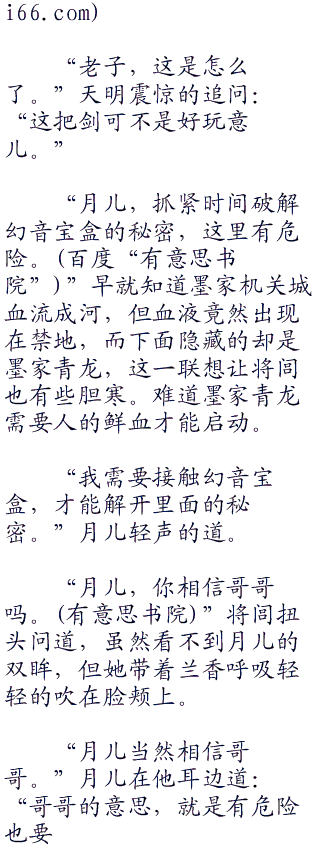 i66.com)
“老子，这是怎么
了。”天明震惊的追问：
“这把剑可不是好玩意
儿。”
“月儿，抓紧时间破解
幻音宝盒的秘密，这里有危
险。(百度“有意思书
院”)”早就知道墨家机关城
血流成河，但血液竟然出现
在禁地，而下面隐藏的却是
墨家青龙，这一联想让将闾
也有些胆寒。难道墨家青龙
需要人的鲜血才能启动。
“我需要接触幻音宝
盒，才能解开里面的秘
密。”月儿轻声的道。
“月儿，你相信哥哥
吗。(有意思书院)”将闾扭
头问道，虽然看不到月儿的
双眸，但她带着兰香呼吸轻
轻的吹在脸颊上。
“月儿当然相信哥
哥。”月儿在他耳边道：
“哥哥的意思，就是有危险
也要